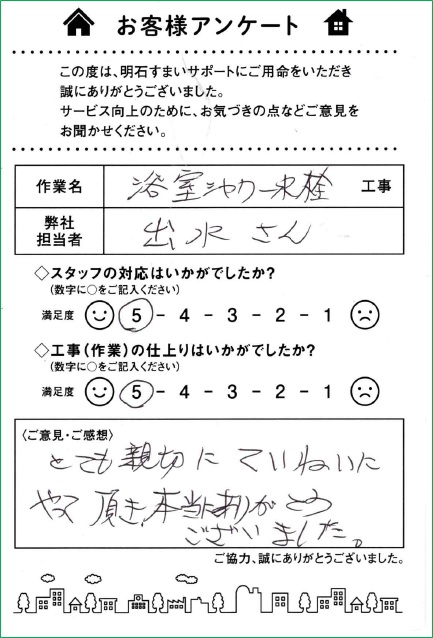 お客様アンケート
この度は、明石すまいサポートにご用命をいただき
誠にありがとうございました。
サービス向上のために、お気づきの点などご意見を
お聞かせください。
作業名 浴室シャワー水栓 工事
弊社担当者 出水さん
◇スタッフの対応はいかがでしたか?
(数字に○をご記入ください)
満足度 5 - 4 - 3 - 2 - 1
◇工事(作業)の仕上りはいかがでしたか?
(数字に○をご記入ください)
満足度 5 - 4 - 3 - 2 - 1
〈ご意見・ご感想〉
とても親切にていねいに
やって頂き、本当にありがとう
ございました。
ご協力、誠にありがとうございました。